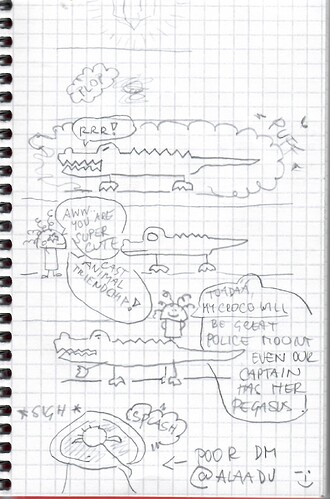 PLOP
* PUFF *
RRR!
AWW
YOU ARE
SUPER
CUTE
CAST
ANIMAL
FRIENDSHIP!
TADAA
MY CROCO WILL
BE GREAT
POLICE MOUNT
EVEN OUR
CAPTAIN
HAS HER
PEGASUS!
*SIGH*
SPLASH
<- POOR DM
@ALAADU